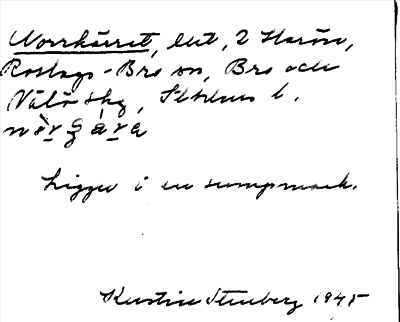 Norrkärret, lnt, 2 Harön,
Roslags-Bro sn, Bro och
Väddö skg, Sthlms l.
Ligger i en sumpmark.
Kerstin Stenberg 1945